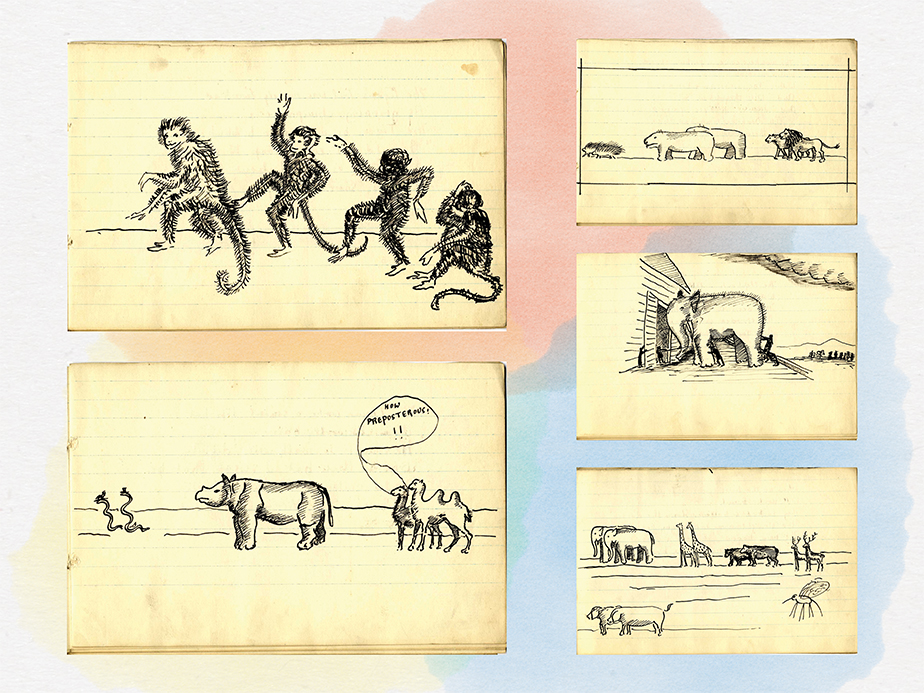 HOW
PREPOSTEROUS!
!!